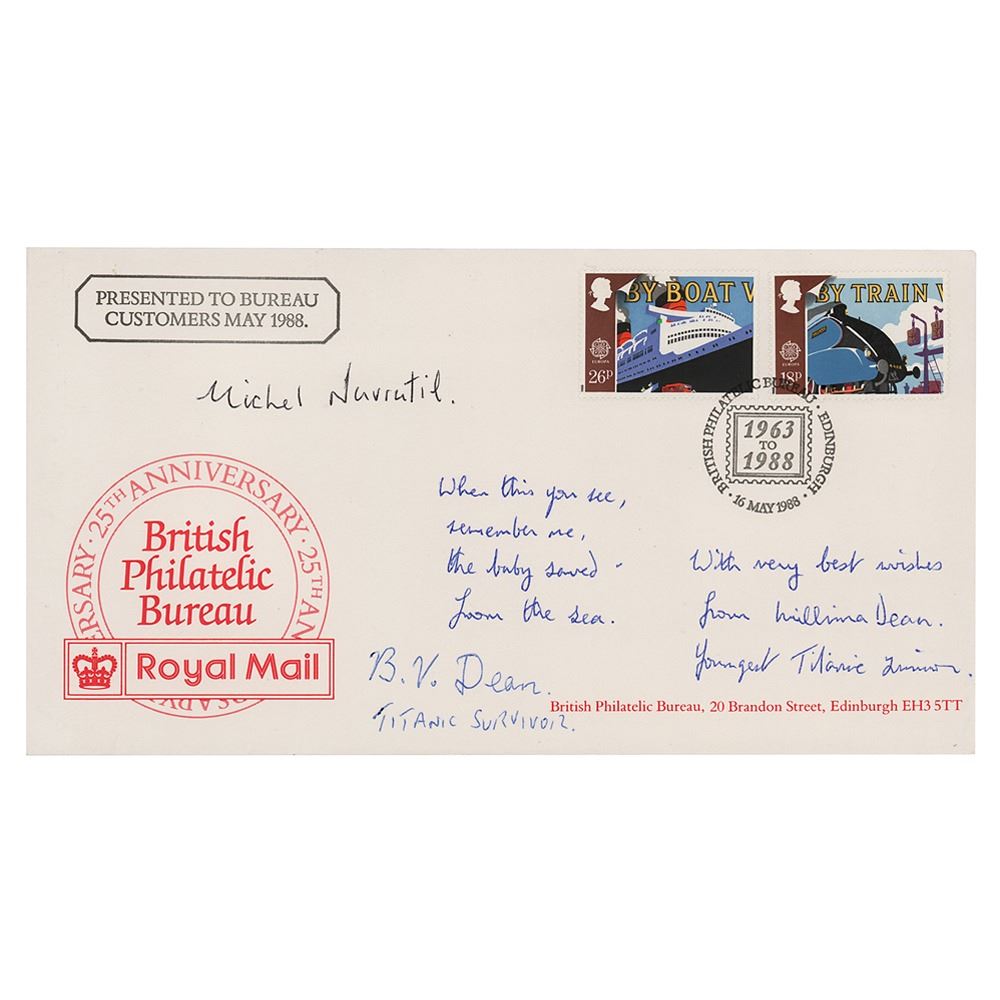 PRESENTED TO BUREAU
CUSTOMERS MAY 1988.
BY BOAT
26P
EUROPA
BY TRAIN
18P
EUROPA
BRITISH PHILATELIC BUREAU · EDINBURGH · 16 MAY 1988 ·
1963
TO
1988
Michel Navratil.
25TH ANNIVERSARY · 25TH AN
ERSARY ·
British
Philatelic
Bureau
Royal Mail
When this you see,
remember me,
the baby saved -
from the sea.
With very best wishes
from Millvina Dean.
Youngest Titanic
B.V. Dean.
TITANIC SURVIVOR.
British Philatelic Bureau, 20 Brandon Street, Edinburgh EH3 5TT